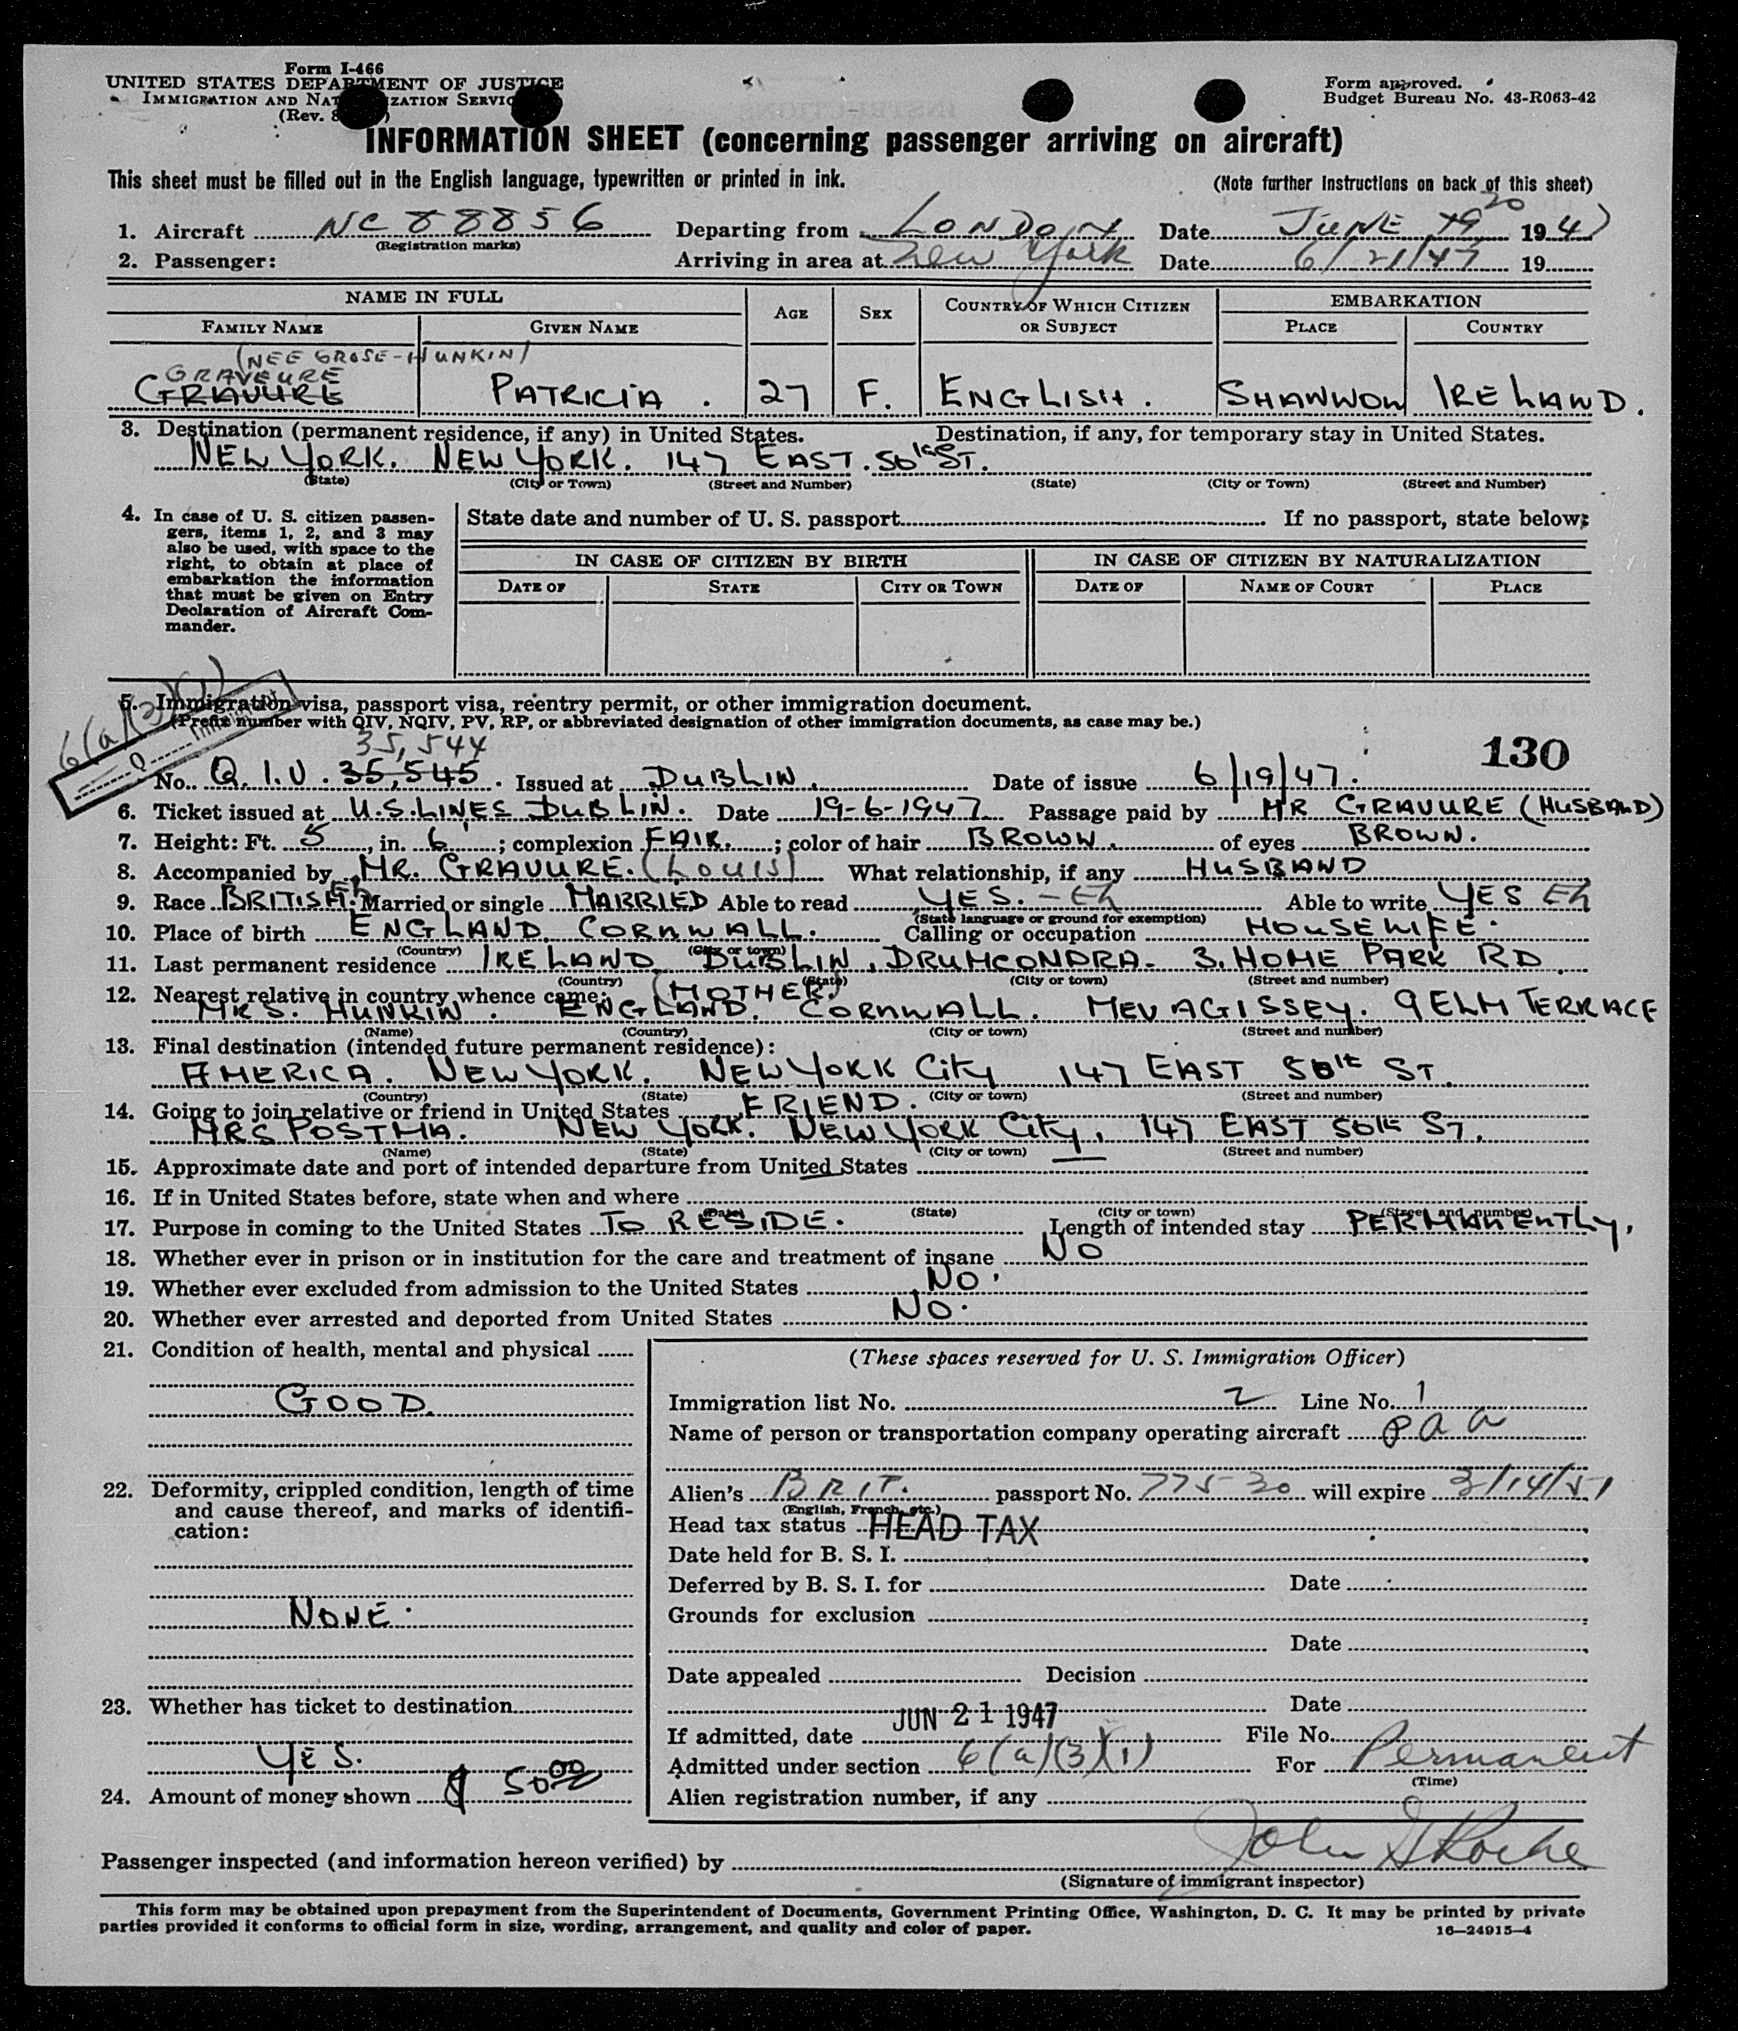 Form I-466
UNITED STATES DEPARTMENT OF JUSTICE
IMMIGRATION AND NATURALIZATION SERVICE
(Rev.
Form approved.
Budget Bureau No. 43-R063-42
INFORMATION SHEET (concerning passenger arriving on aircraft)
This sheet must be filled out in the English language, typewritten or printed in ink.
(Note further Instructions on back of this sheet)
20
1. Aircraft NC 88856 Departing from LONDON Date JUNE 19 1947
(Registration marks)
2. Passenger: Arriving in area at New York Date 6/21/47 19
NAME IN FULL AGE SEX COUNTRY OF WHICH CITIZEN OR SUBJECT EMBARKATION
FAMILY NAME GIVEN NAME PLACE COUNTRY
(NEE GROSE-HUNKIN)
GRAVEURE
GRAVURE PATRICIA. 27 F. ENGLISH. SHANNON IRELAND.
3. Destination (permanent residence, if any) in United States. Destination, if any, for temporary stay in United States.
NEW YORK. NEW YORK. 147 EAST. 50th ST.
(State) (City or Town) (Street and Number) (State) (City or Town) (Street and Number)
4. In case of U. S. citizen passengers, items 1, 2, and 3 may
also be used, with space to the
right, to obtain at place of
embarkation the information
that must be given on Entry
Declaration of Aircraft Commander.
State date and number of U. S. passport If no passport, state below:
IN CASE OF CITIZEN BY BIRTH IN CASE OF CITIZEN BY NATURALIZATION
DATE OF STATE CITY OR TOWN DATE OF NAME OF COURT PLACE
6(a)(3)(1)
5. Immigration visa, passport visa, reentry permit, or other immigration document.
(Prefix number with QIV, NQIV, PV, RP, or abbreviated designation of other immigration documents, as case may be.)
35,544
130
No. Q.I.V. 35,545. Issued at DUBLIN. Date of issue 6/19/47.
6. Ticket issued at U.S. LINES DUBLIN. Date 19-6-1947 Passage paid by MR GRAVURE (HUSBAND)
7. Height: Ft. 5, in. 6; complexion FAIR.; color of hair BROWN. of eyes BROWN.
8. Accompanied by MR. GRAVURE. (LOUIS) What relationship, if any HUSBAND
9. Race BRITISH. Eh Married or single MARRIED Able to read YES. - Eh Able to write YES Eh
(State language or ground for exemption)
10. Place of birth ENGLAND CORNWALL. Calling or occupation HOUSEWIFE.
(Country) (City or town)
11. Last permanent residence IRELAND DUBLIN, DRUMCONDRA- 3. HOME PARK RD.
(Country) (State) (City or town) (Street and number)
12. Nearest relative in country whence came: (MOTHER)
MRS. HUNKIN. ENGLAND. CORNWALL. MEVAGISSEY. 9 ELM TERRACE
(Name) (Country) (City or town) (Street and number)
13. Final destination (intended future permanent residence):
AMERICA. NEW YORK. NEW YORK City 147 EAST 50th ST.
(Country) (State) (City or town) (Street and number)
14. Going to join relative or friend in United States FRIEND.
MRS POSTMA. NEW YORK. NEW YORK City, 147 EAST 50th ST.
(Name) (State) (City or town) (Street and number)
15. Approximate date and port of intended departure from United States
16. If in United States before, state when and where
(Date) (State) (City or town) (Street and number)
17. Purpose in coming to the United States TO RESIDE. Length of intended stay PERMANENTLY.
18. Whether ever in prison or in institution for the care and treatment of insane NO
19. Whether ever excluded from admission to the United States NO.
20. Whether ever arrested and deported from United States NO.
21. Condition of health, mental and physical
GOOD.
22. Deformity, crippled condition, length of time
and cause thereof, and marks of identification:
NONE.
23. Whether has ticket to destination
YES.
24. Amount of money shown $ 50.00
(These spaces reserved for U. S. Immigration Officer)
Immigration list No. 2 Line No. 1
Name of person or transportation company operating aircraft P a a
Alien's BRIT. passport No. 77530 will expire 3/14/51
(English, French, etc.)
Head tax status HEAD TAX
Date held for B. S. I.
Deferred by B. S. I. for Date
Grounds for exclusion
Date
Date appealed Decision
Date
If admitted, date JUN 21 1947 File No.
Admitted under section 6(a)(3)(1) For Permanent
(Time)
Alien registration number, if any
Passenger inspected (and information hereon verified) by John Roche
(Signature of immigrant inspector)
This form may be obtained upon prepayment from the Superintendent of Documents, Government Printing Office, Washington, D. C. It may be printed by private
parties provided it conforms to official form in size, wording, arrangement, and quality and color of paper.
16—24915-4